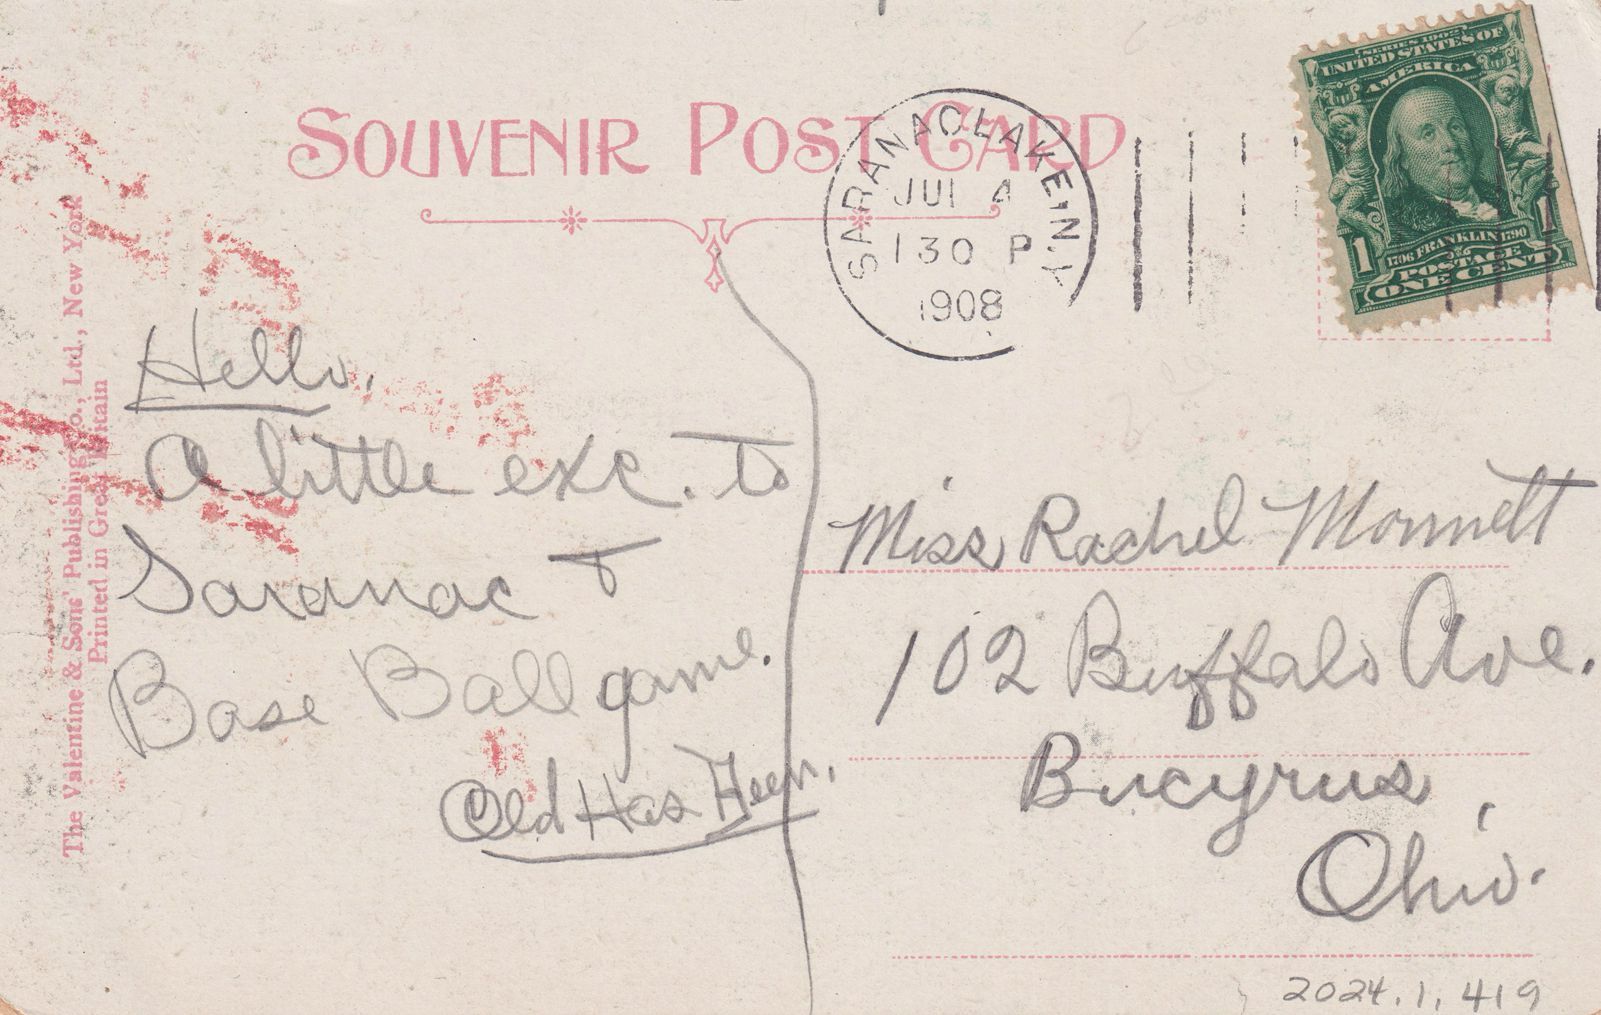 SOUVENIR POST CARD
SARANAC LAKE, N.Y.
JUL 4
130 P
1908
SERIES 1902
UNITED STATES OF
AMERICA
1706 FRANKLIN 1790
POSTAGE
1 ONE CENT 1
The Valentine & Sons' Publishing Co., Ltd., New York
Printed in Great Britain
Hello.
A little exc. to
Saranac &
Base Ball game.
Old Has Been.
Miss Rachel Monnett
102 Buffalo Ave.
Bucyrus,
Ohio.
2024.1.419